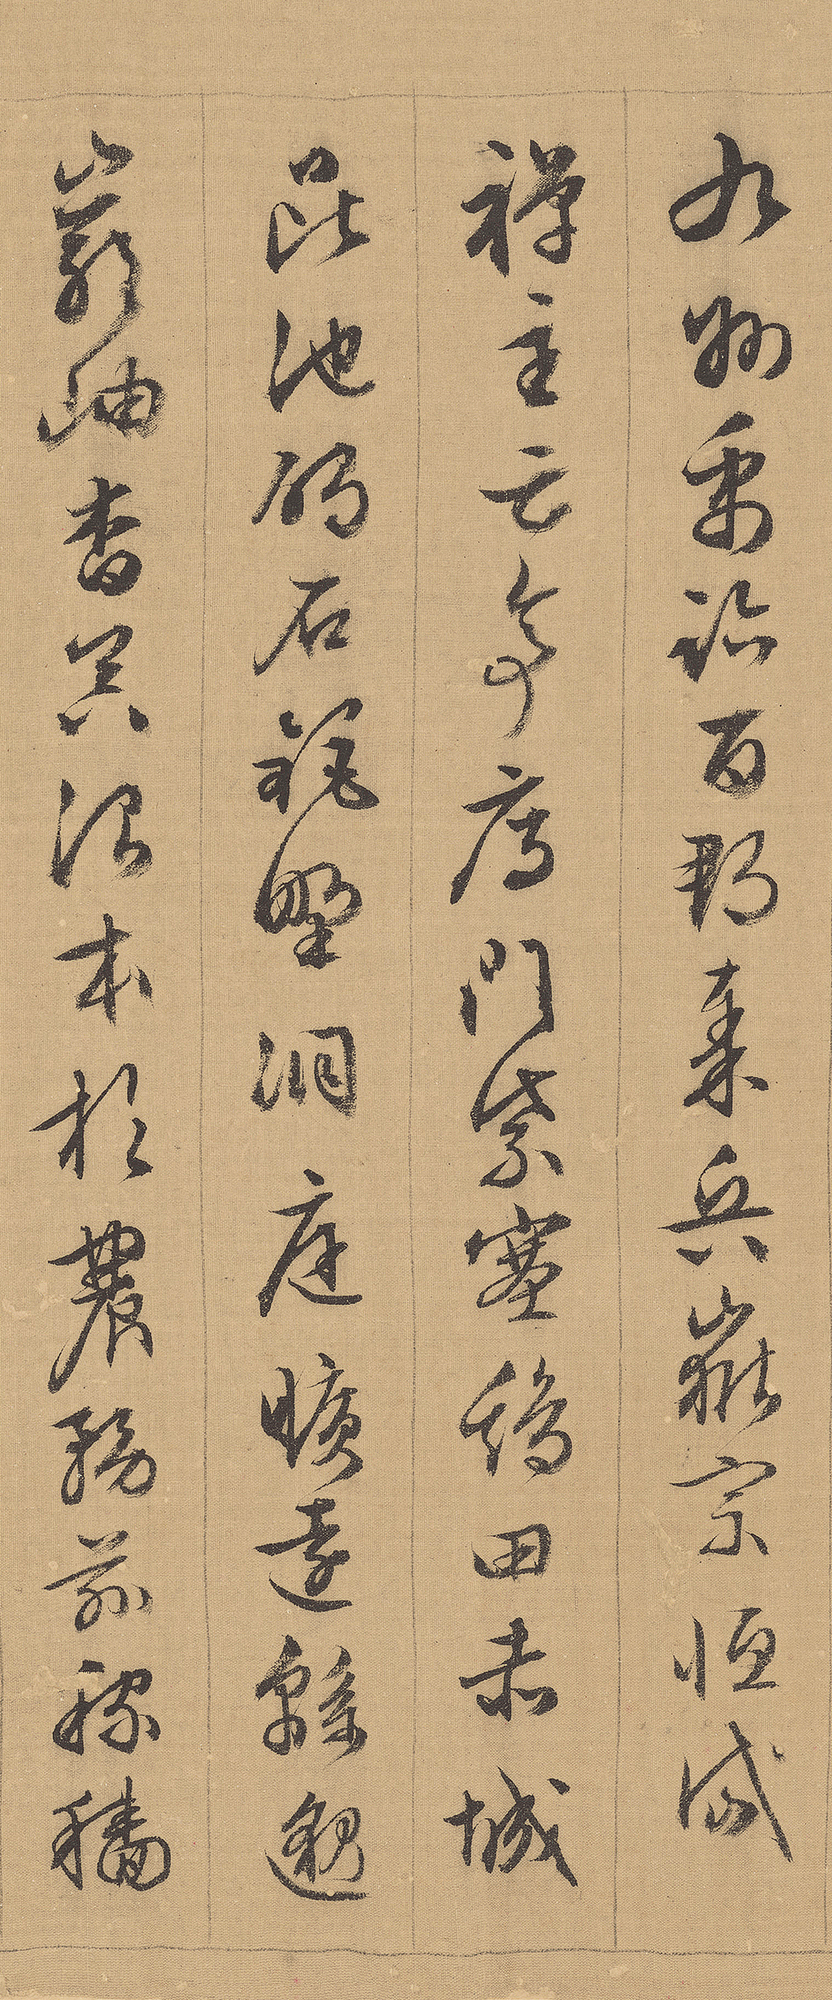 九州禹跡百郡秦并嶽宗恒岱
禪主云亭雁門紫塞鷄田赤城
昆池碣石鉅野洞庭曠遠緜邈
巖岫杳冥治本於農務茲稼穡